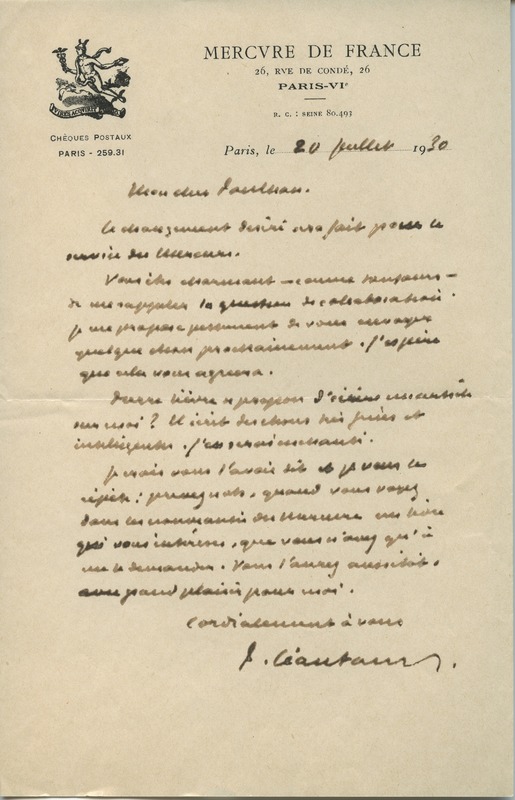 MERCVRE DE FRANCE
26, RVE DE CONDÉ, 26
PARIS-VIe
R. C. : SEINE 80.493
VIRES ACQUIRIT EUNDO
CHÈQUES POSTAUX
PARIS - 259.31
Paris, le 20 juillet 1930
Mon cher Paulhan.
Le changement désiré sera fait pour le
service du Mercure.
Vous êtes charmant – comme toujours –
de me rappeler la question de collaboration.
Je me propose justement de vous envoyer
quelque chose prochainement. J'espère
que cela vous agréera.
Pierre Lièvre a proposé d'écrire un article
sur moi ? Il écrit des choses très fines et
intelligentes. J'en serai enchanté.
Je crois vous l'avoir dit et je vous le
répète : prenez note, quand vous voyez
dans les nouveautés du Mercure un livre
qui vous intéresse, que vous n'avez qu'à
me le demander. Vous l'aurez aussitôt,
avec grand plaisir pour moi.
Cordialement à vous
P. Léautaud.